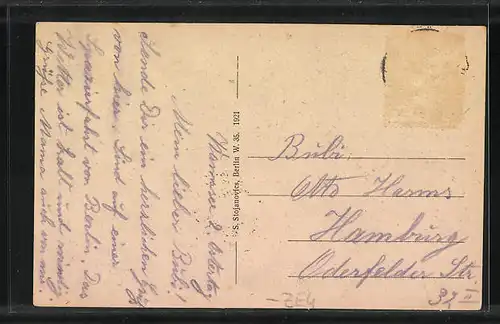 Wannsee 2. Ostertag
Mein lieber Bubi!
Sende Dir ein herzlichen Gruß
von hier. Sind auf einer
Spazierfahrt von Berlin. Das
Wetter ist kalt und windig.
Grüße Mama auch von mir.
S. Stojanovits, Berlin W. 35. 1921
Bubi
Otto Harms
Hamburg
Oderfelder Str.
37 II